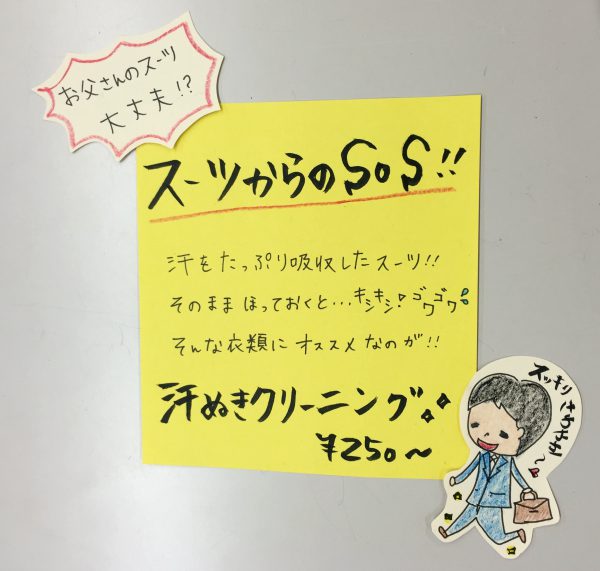 お父さんのスーツ
大丈夫!?
スーツからのSOS!!
汗をたっぷり吸収したスーツ!!
そのままほっておくと…キシキシ!ゴワゴワ
そんな衣類にオススメなのが!!
汗ぬきクリーニング
¥250〜
スッキリさわやか〜